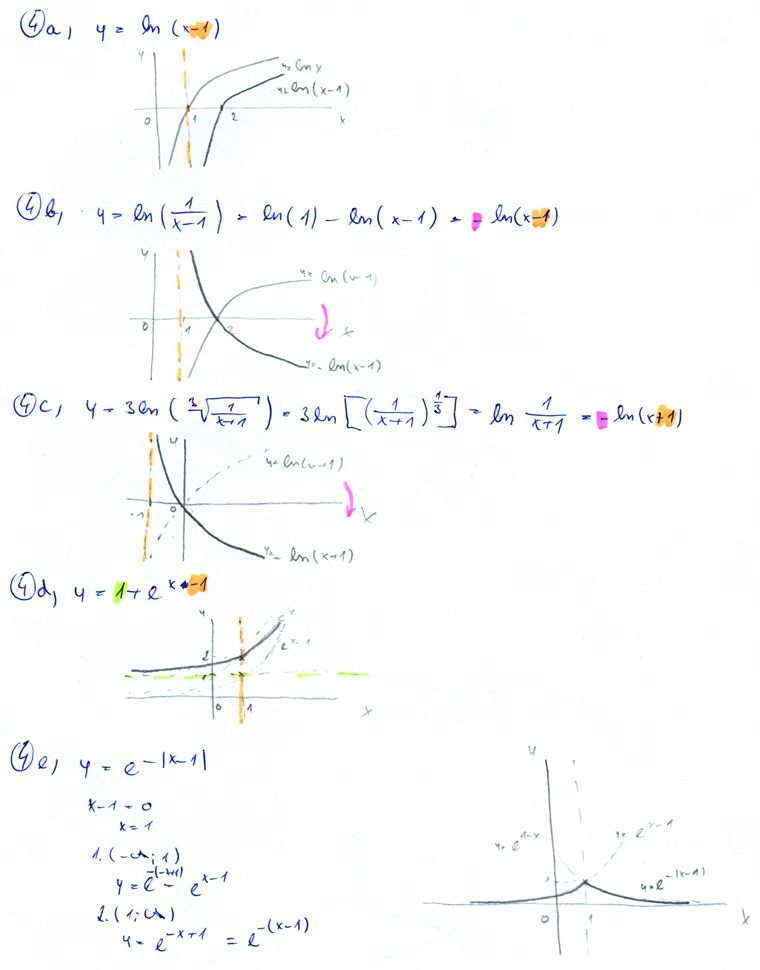 ④a, y = ln (x-1)
y
y=lnx
y=ln(x-1)
0 1 2 x
④b, y = ln(1/(x-1)) = ln(1) - ln(x-1) = - ln(x-1)
y
y= ln(x-1)
0 1 2 x
y=-ln(x-1)
④c, y = 3ln(∛(1/(x+1))) = 3ln[(1/(x+1))^(1/3)] = ln 1/(x+1) = - ln(x+1)
y
y=ln(x+1)
-1 0 x
y=-ln(x+1)
④d, y = 1+e^(x-1)
y
e^x
2 e^(x-1)
1
0 1 x
④e, y = e^(-|x-1|)
y
x-1=0
x=1
y=e^(1-x) y=e^(x-1)
1. (-∞; 1)
y=e^(-(-x+1)) = e^(x-1)
1 y=e^(-|x-1|)
2. (1; ∞)
0 1 x
y=e^(-x+1) = e^(-(x-1))